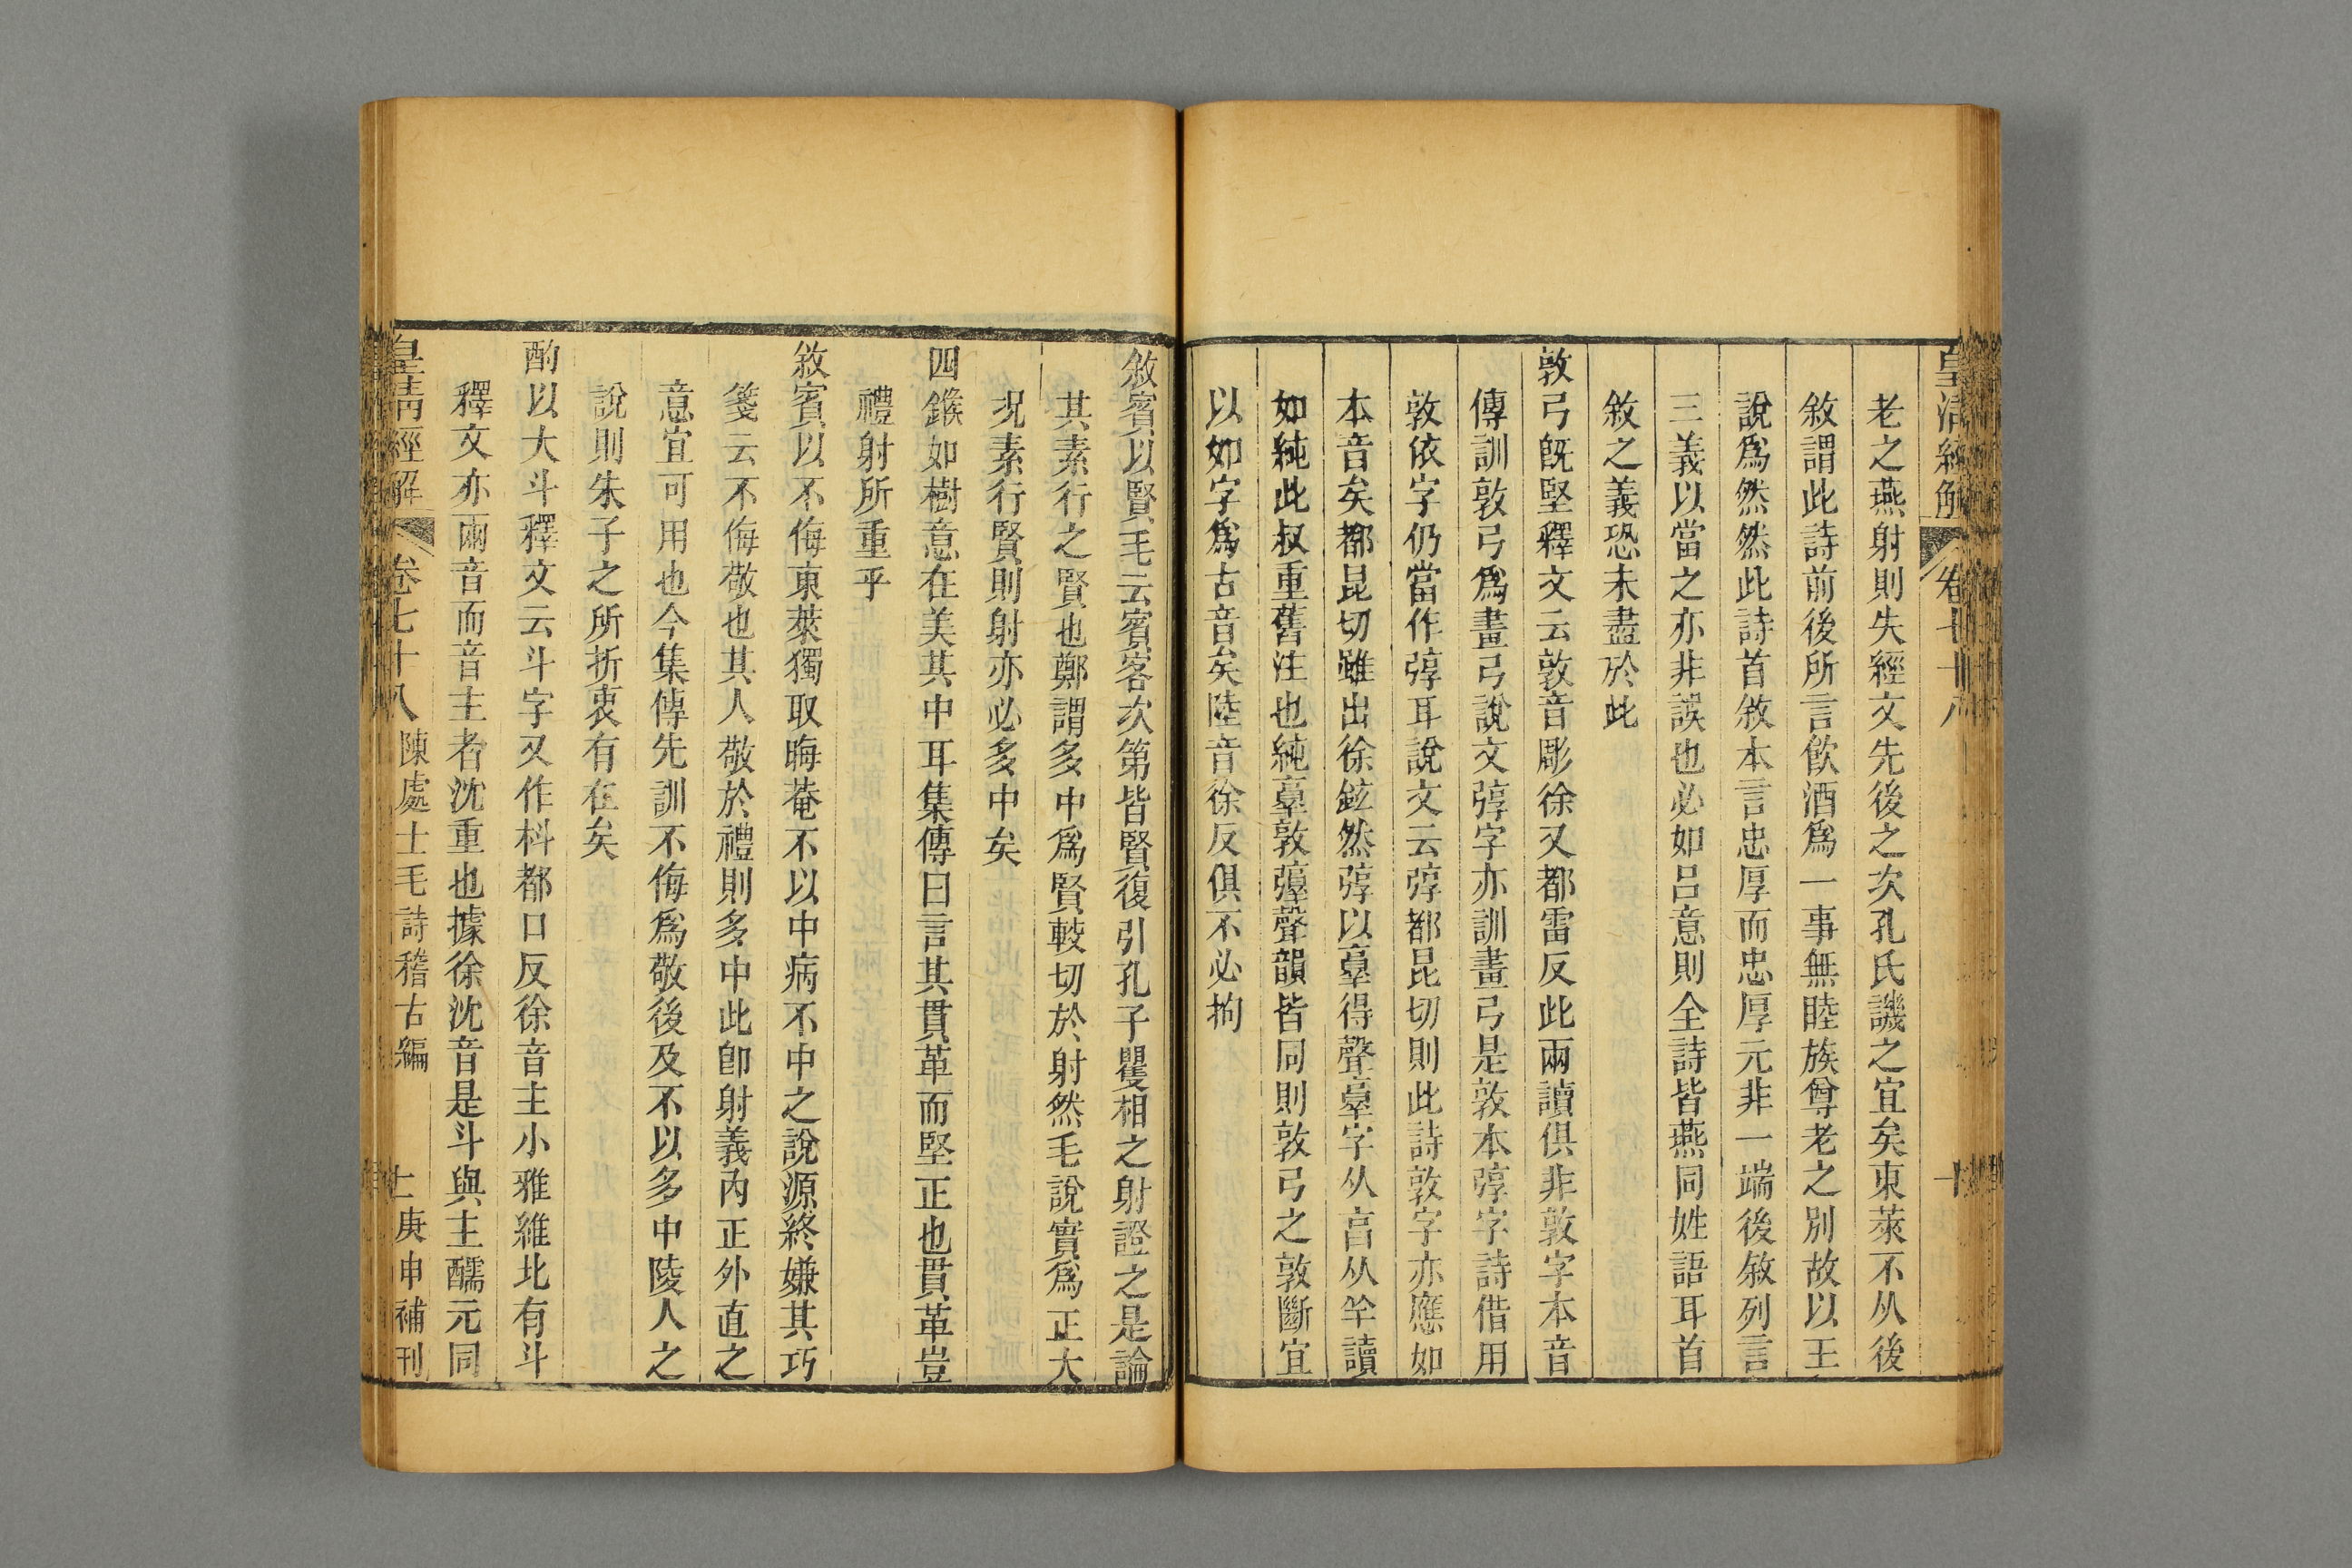 皇清經解 卷七十八 十
老之燕射則失經文先後之次孔氏譏之宜矣東萊不从後
敘謂此詩前後所言飮酒爲一事無睦族尊老之別故以王
說爲然然此詩首敘本言忠厚而忠厚元非一端後敘列言
三義以當之亦非誤也必如呂意則全詩皆燕同姓語耳首
敘之義恐未盡於此
敦弓旣堅釋文云敦音彫徐又都雷反此兩讀俱非敦字本音
傳訓敦弓爲畫弓說文弴字亦訓畫弓是敦本弴字詩借用
敦依字仍當作弴耳說文云弴都昆切則此詩敦字亦應如
本音矣都昆切雖出徐鉉然弴以𦎧得聲𦎧字从亯从羊讀
如純此叔重舊注也純𦎧敦弴聲韻皆同則敦弓之敦斷宜
以如字爲古音矣陸音徐反俱不必拘
敘賓以賢毛云賓客次第皆賢復引孔子矍相之射證之是論
其素行之賢也鄭謂多中爲賢較切於射然毛說實爲正大
況素行賢則射亦必多中矣
四鍭如樹意在美其中耳集傳曰言其貫革而堅正也貫革豈
禮射所重乎
敘賓以不侮東萊獨取晦菴不以中病不中之說源終嫌其巧
箋云不侮敬也其人敬於禮則多中此卽射義內正外直之
意宜可用也今集傳先訓不侮爲敬後及不以多中陵人之
說則朱子之所折衷有在矣
酌以大斗釋文云斗字又作枓都口反徐音主小雅維北有斗
釋文亦兩音而音主者沈重也據徐沈音是斗與主醹元同
皇清經解 卷七十八 陳處士毛詩稽古編 庚申補刊